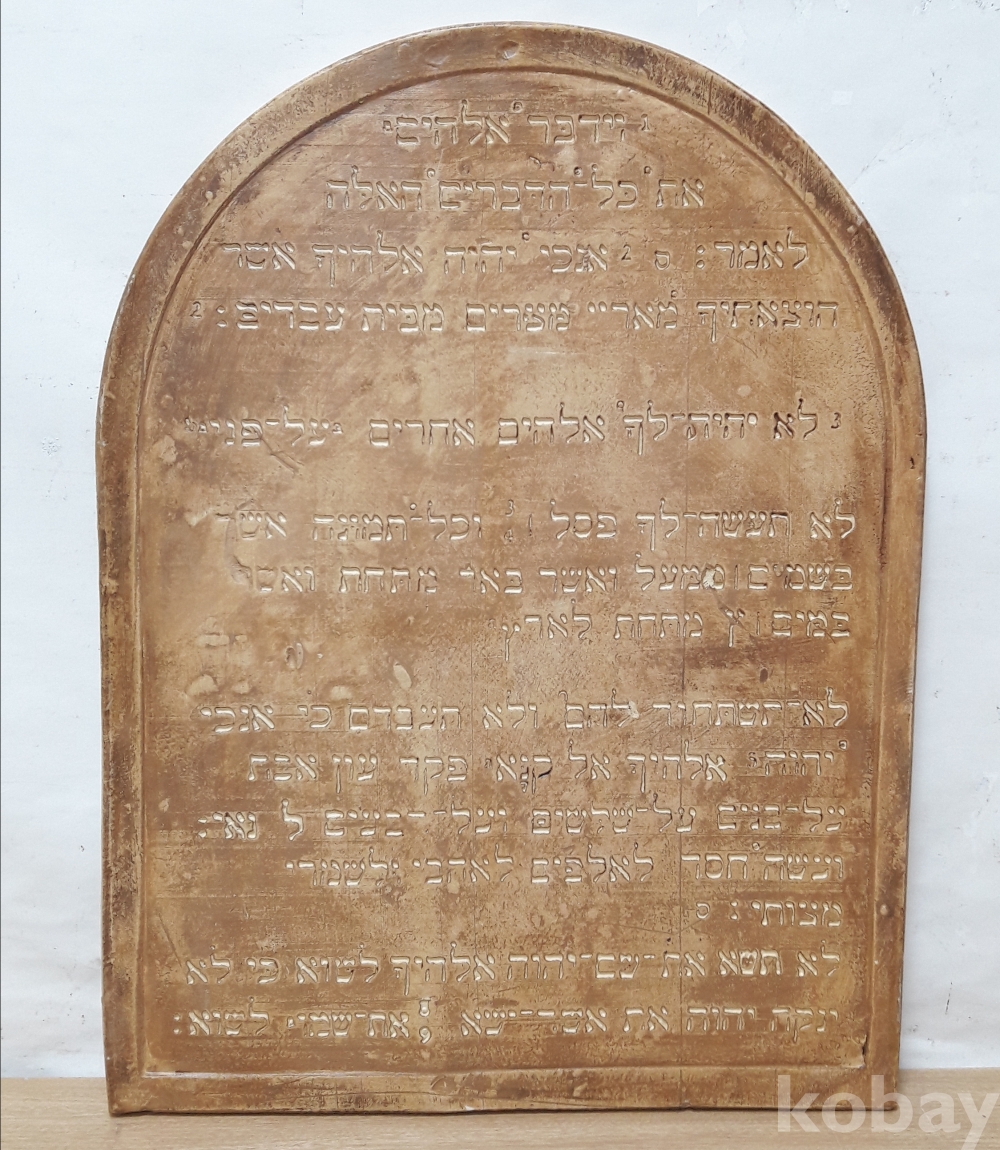 1 וידבר אלהים
את כל־הדברים האלה
לאמר: ס 2 אנכי יהוה אלהיך אשר
הוצאתיך מאריי מצרים מבית עבדים: 2
3 לא יהיה־לך אלהים אחרים על־פני
לא תעשה־לך פסל 3 4 וכל־תמונה אשר
בשמים ממעל ואשר באר מתחת
במים ץ מתחת לארץ
לא־תשתחוה להם ולא תעבדם כי אנכי
יהוה אלהיך אל קנא פקד עון אבת
על־בנים על־שלשים ועל־־בעים ל נאי:
ועשה חסד לאלפים לאהבי ולשמרי
מצותי: ס
לא תשא את־שם־יהוה אלהיך לשוא כי לא
ינקה יהוה את אשר־ישא את־שמי לשוא:
kobay